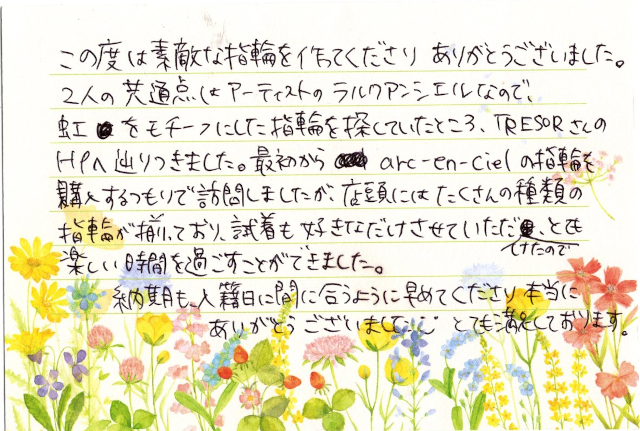 この度は素敵な指輪を作ってくださり ありがとうございました。
2人の共通点はアーティストのラルクアンシエルなので、
虹をモチーフにした指輪を探していたところ、TRESORさんの
HPへ辿りつきました。最初から arc-en-cielの指輪を
購入するつもりで訪問しましたが、店頭にはたくさんの種類の
指輪が揃っており、試着も好きなだけさせていただけたので、とても
楽しい時間を過ごすことができました。
納期も、入籍日に間に合うように早めてくださり本当に
ありがとうございました とても満足しております。